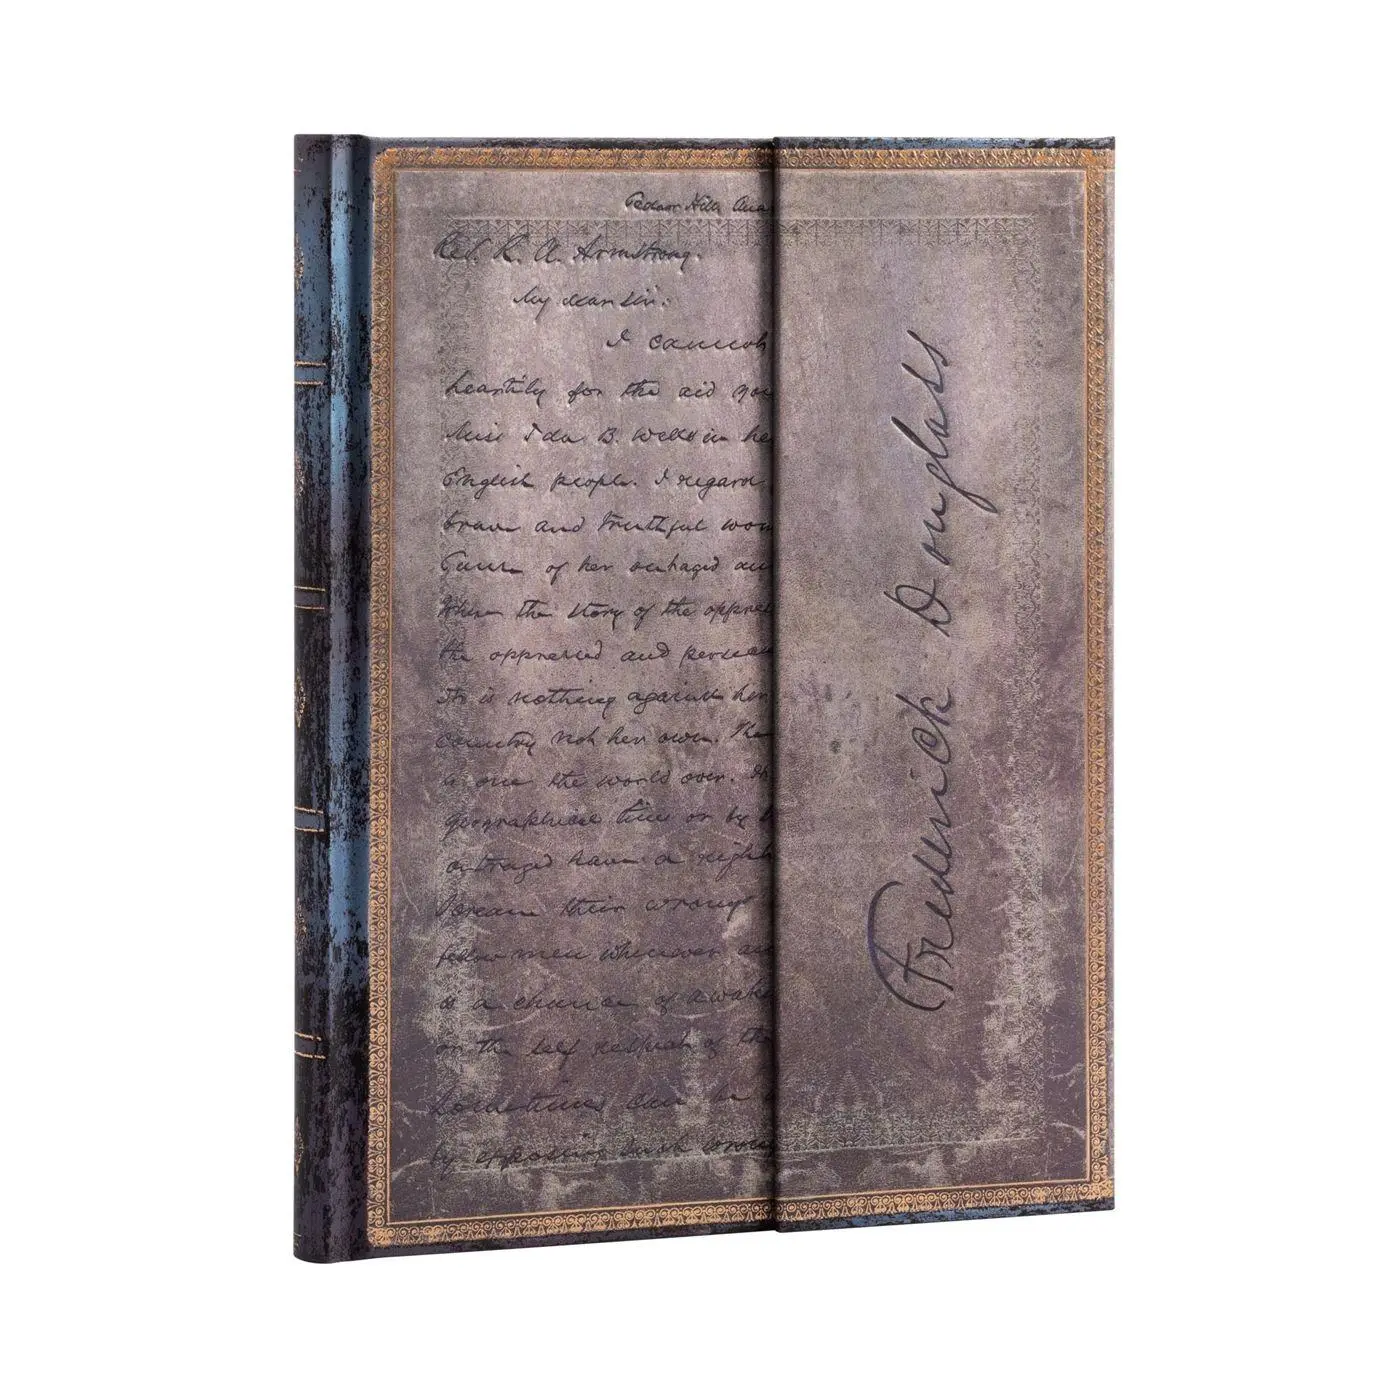 Cedar Hill Ana
Rev. R. A. Armstrong.
My dear Sir:
I cannot
heartily for the aid you
Miss Ida B. Wells in he
English people. I regard
brave and truthful wom
Cause of her outraged an
Where the story of the oppres
the oppressed and persecu
It is nothing against her
country not her own. The
is one the world over.
geographical lines or by
outraged have a right
their wrongs
fellow men whenever an
is a chance of awake
or the self respect of the
Sometimes can be
by exposing such wrong
Frederick Douglass